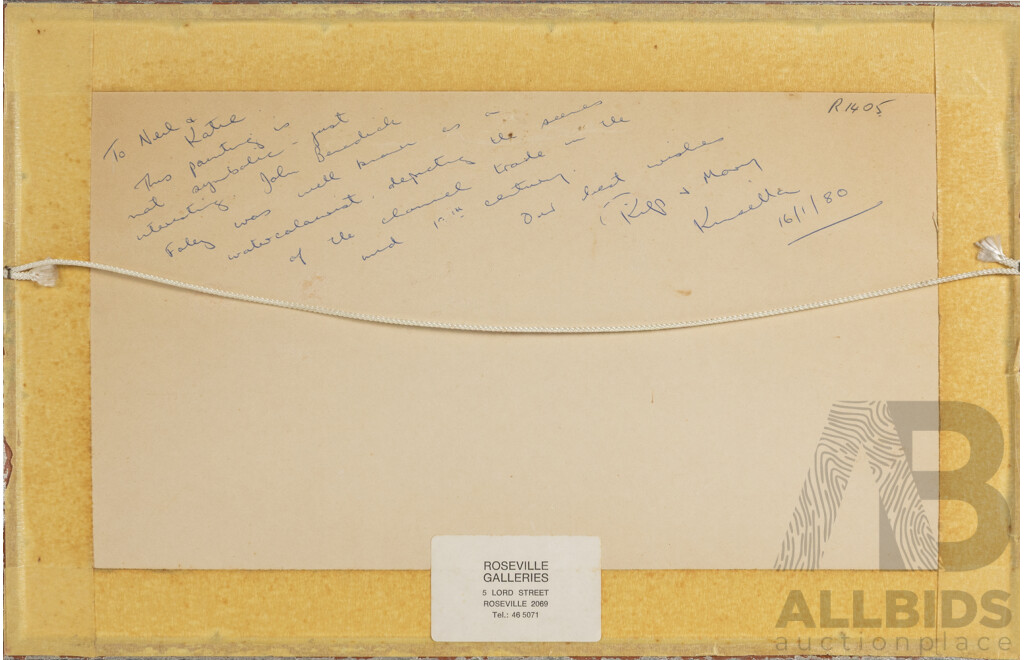 To Neil &
Katie
This painting is
not symbolic - just
interesting. John Benedict
Foley was well known as a
watercolourist depicting the scenes
of the channel trade in the
mid century.
Our best wishes
& Mary
Kinsella
16/1/80
R1405
ROSEVILLE
GALLERIES
5 LORD STREET
ROSEVILLE 2069
Tel.: 46 5071
AB
ALLBIDS
auctionplace